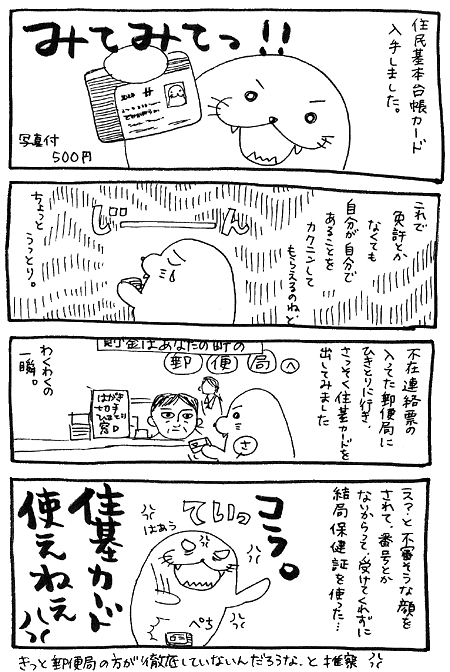 住民基本台帳カード
入手しました。
みてみてっ!!
写真付
500円
これで
免許とか
なくても
自分が自分で
あることを
カクニンして
もらえるのね、と
じーーん
ちょっと
うっとり。
不在連絡票の
入ってた郵便局に
ひきとりに行き
さっそく住基カードを
出してみました
貯金はあなたの町の
郵便局へ
はがき
切手
窓口
さ
わくわくの
一瞬。
「えっ?」と不審そうな顔を
されて、番号とか
ないからって、受けてくれずに
結局保健証を使った…
コラ。
ていっ
はぁう
ぺち
住基カード
使えねえ
きっと郵便局の方が徹底していないんだろうな。と推察